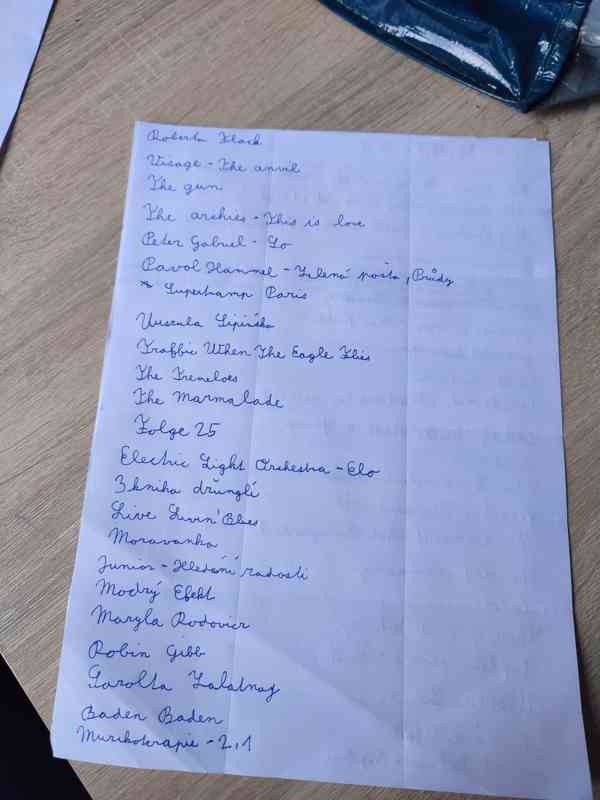 Roberta Flack
Visage - The anvil
The gun
The archies - This is love
Peter Gabriel - So
Pavol Hammel - Zelená pošta, Prúdy
* Supertramp Paris
Urszula Sipińska
Traffic When The Eagle Flies
The Tremeloes
The Marmalade
Folge 25
Electric Light Orchestra - Elo
3 kniha džunglí
Live Livin' Blues
Moravanka
Junior - Hledání radosti
Modrý Efekt
Maryla Rodovicz
Robin Gibb
Sarolta Zalatnay
Baden Baden
Muzikoterapie - 2,1